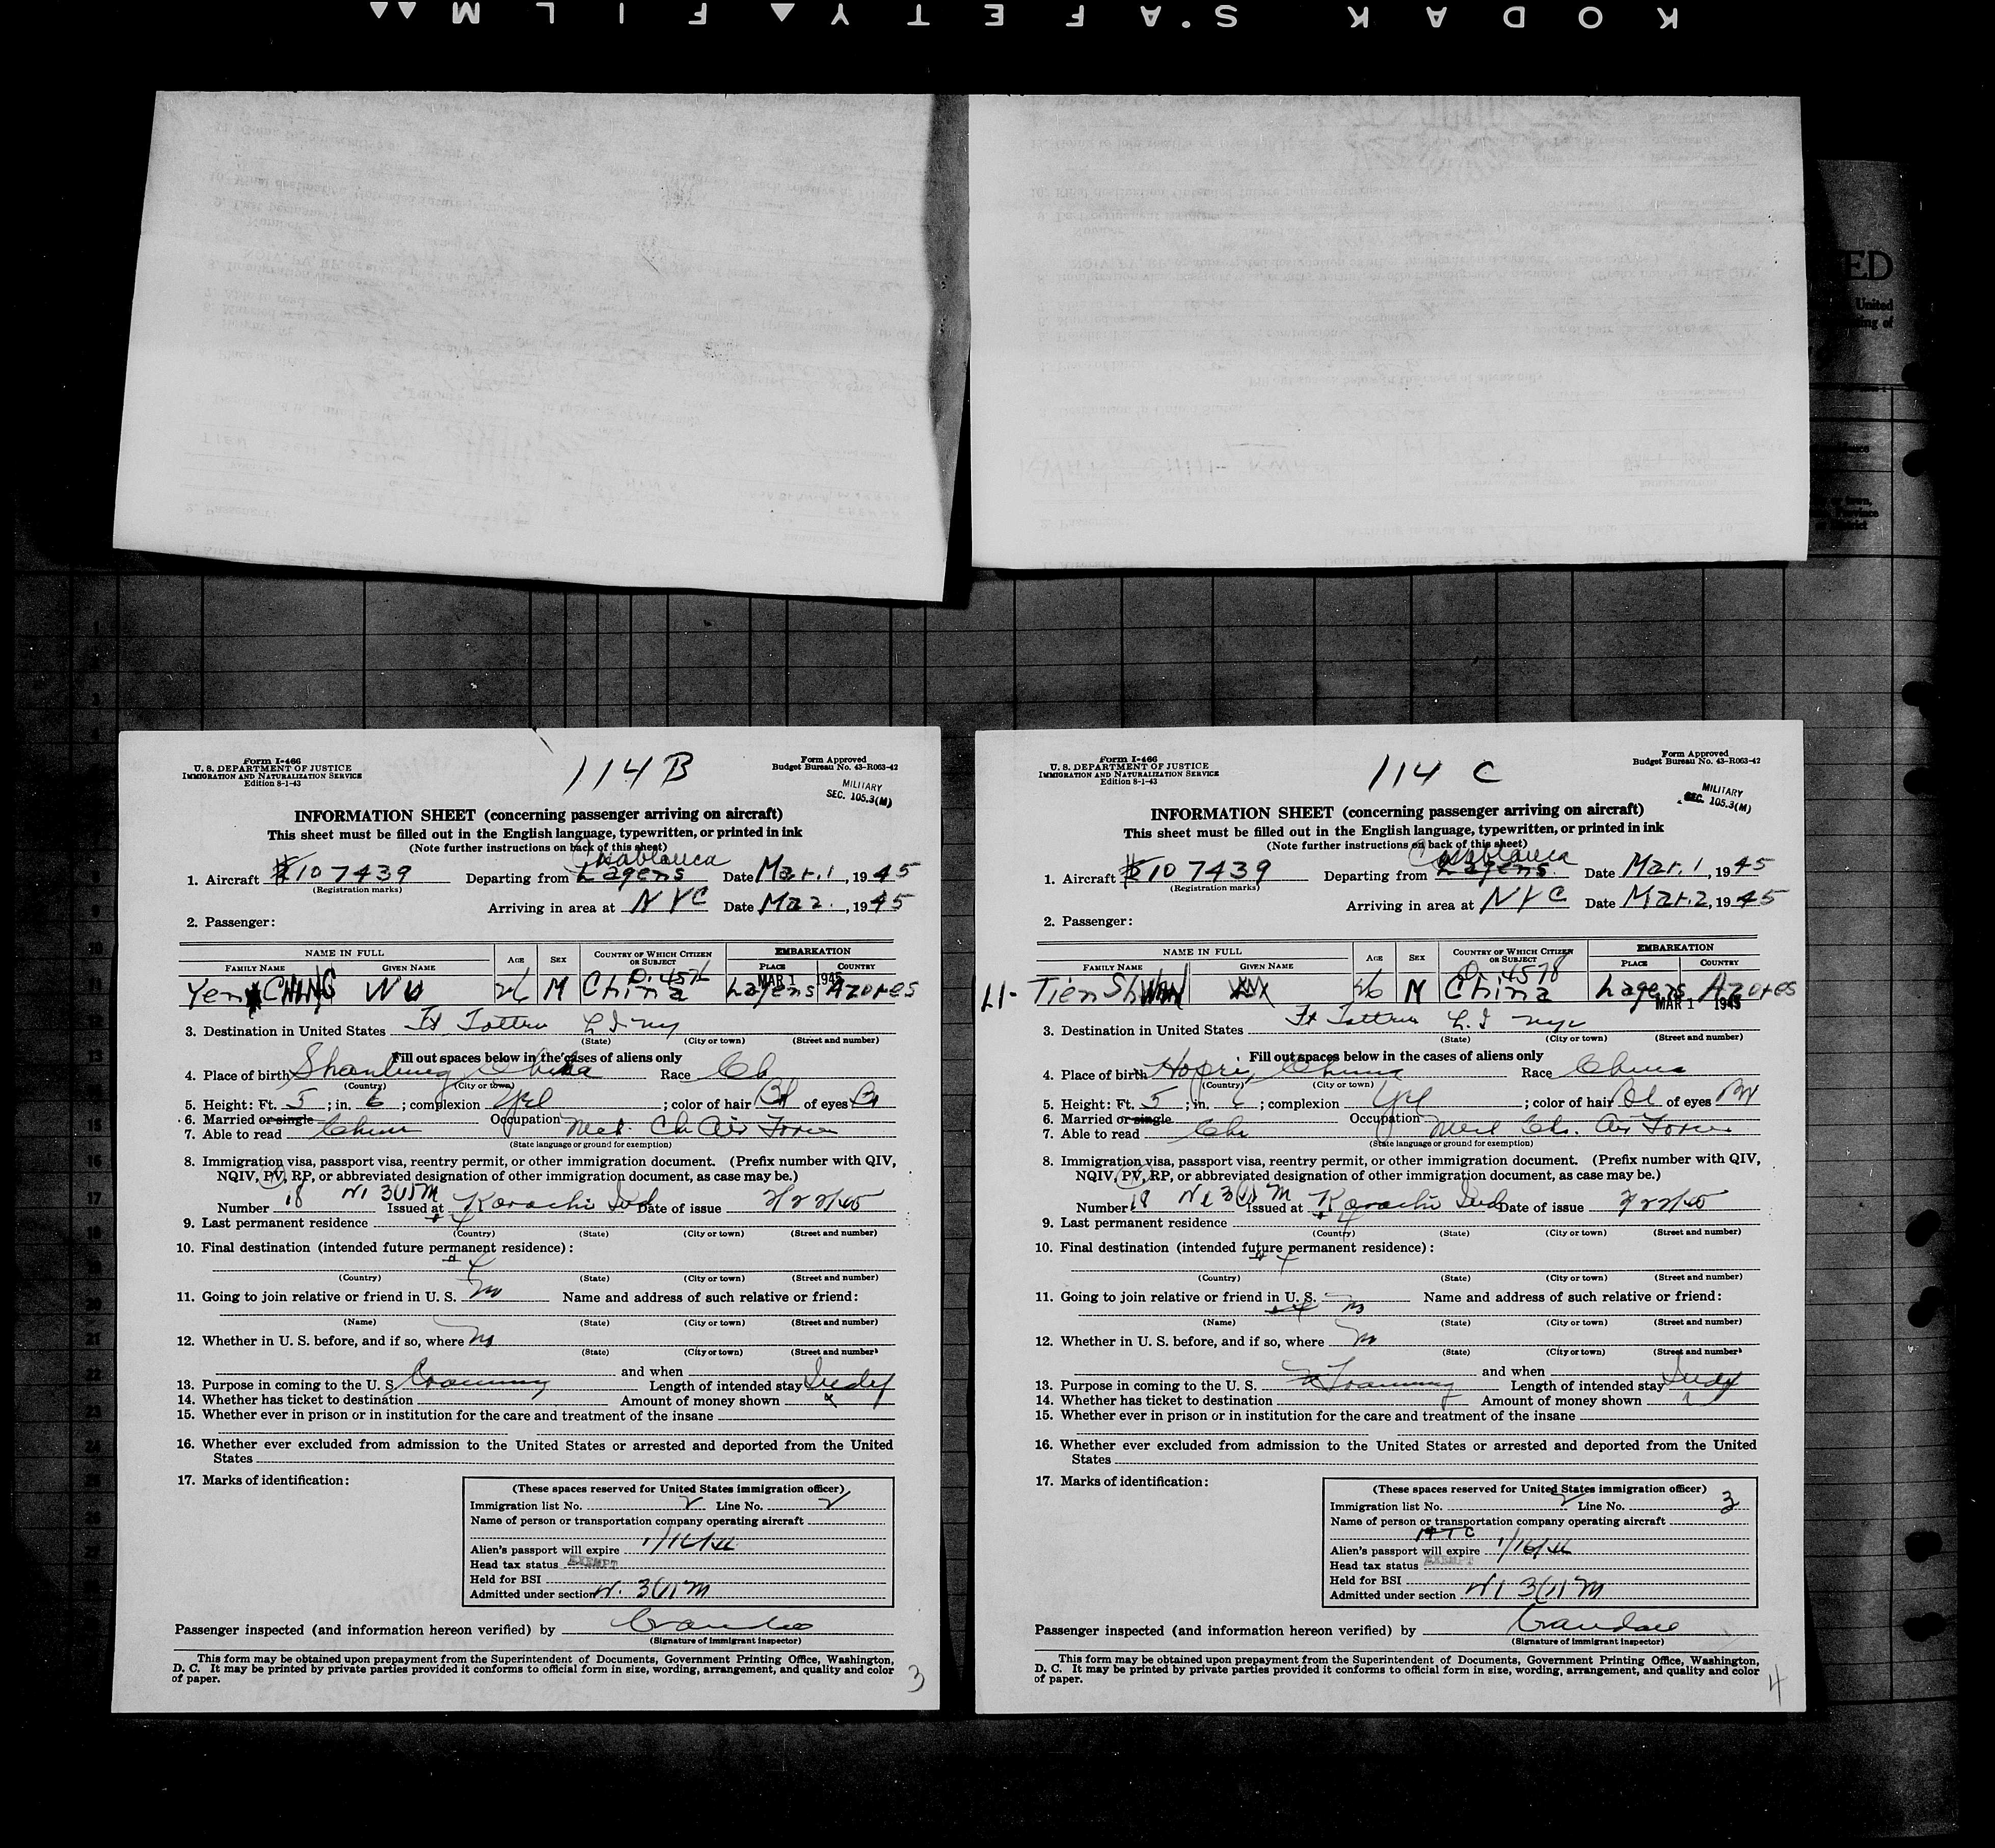 KODAK SAFETY FILM
ED
United
Form I-466
U. S. DEPARTMENT OF JUSTICE
IMMIGRATION AND NATURALIZATION SERVICE
Edition 8-1-43
114 B
Form Approved
Budget Bureau No. 43-R063-42
MILITARY
SEC. 105.3(M)
INFORMATION SHEET (concerning passenger arriving on aircraft)
This sheet must be filled out in the English language, typewritten, or printed in ink
(Note further instructions on back of this sheet)
Casablanca
1. Aircraft 107439 Departing from Lagens Date Mar. 1, 1945
(Registration marks)
Arriving in area at NYC Date Mar 2., 1945
2. Passenger:
NAME IN FULL AGE SEX COUNTRY OF WHICH CITIZEN OR SUBJECT EMBARKATION
FAMILY NAME GIVEN NAME PLACE COUNTRY
D. 4576 MAR 1 1945
Yen WU 26 M China Lagens Azores
3. Destination in United States Ft Totten L I NY
(State) (City or town) (Street and number)
Fill out spaces below in the cases of aliens only
4. Place of birth Shantung China Race Ch
(Country) (City or town)
5. Height: Ft. 5; in. 6; complexion Yel; color of hair Bl of eyes Br
6. Married or single Occupation Mil. Ch Air Force
7. Able to read Chin
(State language or ground for exemption)
8. Immigration visa, passport visa, reentry permit, or other immigration document. (Prefix number with QIV,
NQIV, PV, RP, or abbreviated designation of other immigration document, as case may be.)
Number 18 Issued at Karachi Ind Date of issue 2/22/45
9. Last permanent residence
(Country) (State) (City or town) (Street and number)
10. Final destination (intended future permanent residence):
(Country) (State) (City or town) (Street and number)
11. Going to join relative or friend in U. S. no Name and address of such relative or friend:
(Name) (State) (City or town) (Street and number)
12. Whether in U. S. before, and if so, where no
(State) (City or town) (Street and number)
and when
13. Purpose in coming to the U. S. Training Length of intended stay Indef
14. Whether has ticket to destination Amount of money shown
15. Whether ever in prison or in institution for the care and treatment of the insane
16. Whether ever excluded from admission to the United States or arrested and deported from the United
States
17. Marks of identification:
(These spaces reserved for United States immigration officer)
Immigration list No. 2 Line No. 2
Name of person or transportation company operating aircraft
Alien's passport will expire 1/16/46
Head tax status EXEMPT
Held for BSI
Admitted under section 3(1)M
Passenger inspected (and information hereon verified) by Crandall
(Signature of immigrant inspector)
This form may be obtained upon prepayment from the Superintendent of Documents, Government Printing Office, Washington,
D. C. It may be printed by private parties provided it conforms to official form in size, wording, arrangement, and quality and color
of paper.
3
Form I-466
U. S. DEPARTMENT OF JUSTICE
IMMIGRATION AND NATURALIZATION SERVICE
Edition 8-1-43
114 C
Form Approved
Budget Bureau No. 43-R063-42
MILITARY
SEC. 105.3(M)
INFORMATION SHEET (concerning passenger arriving on aircraft)
This sheet must be filled out in the English language, typewritten, or printed in ink
(Note further instructions on back of this sheet)
Casablanca
1. Aircraft 107439 Departing from Lagens Date Mar. 1, 1945
(Registration marks)
Arriving in area at NYC Date Mar. 2, 1945
2. Passenger:
NAME IN FULL AGE SEX COUNTRY OF WHICH CITIZEN OR SUBJECT EMBARKATION
FAMILY NAME GIVEN NAME PLACE COUNTRY
D. 4578
LI- Tien 26 M China Lagens Azores
MAR 1 1945
3. Destination in United States Ft Totten L. I NYC
(State) (City or town) (Street and number)
Fill out spaces below in the cases of aliens only
4. Place of birth Hopei, China Race China
(Country) (City or town)
5. Height: Ft. 5; in. 6; complexion Yel; color of hair Bl of eyes Br
6. Married or single Occupation Mil Ch. Air Force
7. Able to read Chi
(State language or ground for exemption)
8. Immigration visa, passport visa, reentry permit, or other immigration document. (Prefix number with QIV,
NQIV, PV, RP, or abbreviated designation of other immigration document, as case may be.)
Number 18 Issued at Karachi Ind Date of issue 2/22/45
9. Last permanent residence
(Country) (State) (City or town) (Street and number)
10. Final destination (intended future permanent residence):
(Country) (State) (City or town) (Street and number)
11. Going to join relative or friend in U. S. no Name and address of such relative or friend:
(Name) (State) (City or town) (Street and number)
12. Whether in U. S. before, and if so, where no
(State) (City or town) (Street and number)
and when
13. Purpose in coming to the U. S. Training Length of intended stay Indef
14. Whether has ticket to destination Amount of money shown
15. Whether ever in prison or in institution for the care and treatment of the insane
16. Whether ever excluded from admission to the United States or arrested and deported from the United
States
17. Marks of identification:
(These spaces reserved for United States immigration officer)
Immigration list No. 2 Line No. 3
Name of person or transportation company operating aircraft
ATC
Alien's passport will expire 1/16/46
Head tax status EXEMPT
Held for BSI
Admitted under section 3(1)M
Passenger inspected (and information hereon verified) by Crandall
(Signature of immigrant inspector)
This form may be obtained upon prepayment from the Superintendent of Documents, Government Printing Office, Washington,
D. C. It may be printed by private parties provided it conforms to official form in size, wording, arrangement, and quality and color
of paper.
4